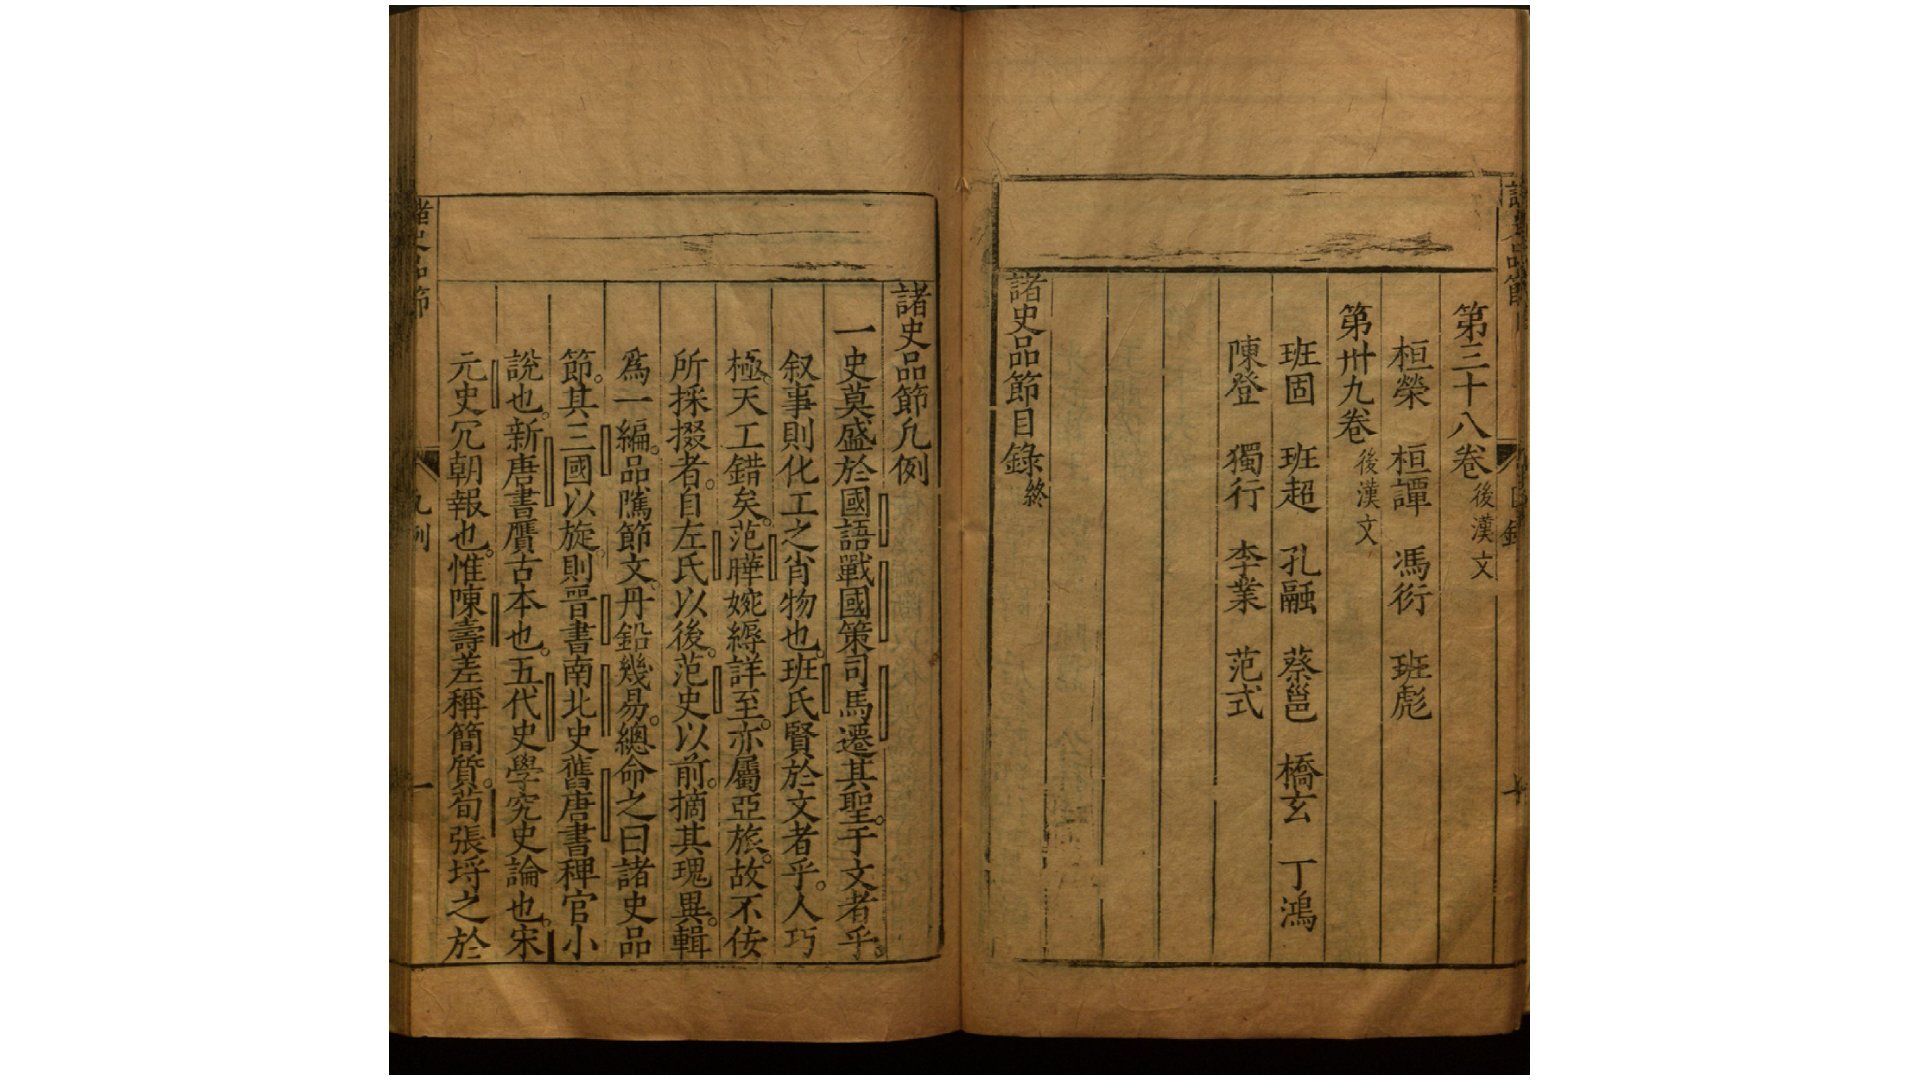 諸史品節
目錄
第三十八卷後漢文
桓榮 桓譚 馮衍 班彪
第卅九卷後漢文
班固 班超 孔融 蔡邕 橋玄 丁鴻
陳登 獨行 李業 范式
諸史品節目錄終
諸史品節凡例
一史莫盛於國語戰國策司馬遷其聖于文者乎。
叙事則化工之肖物也。班氏賢於文者乎。人巧
極。天工錯矣。范曄婉縟詳至。亦屬亞旅。故不佞
所採掇者。自左氏以後。范史以前。摘其瑰異。輯
爲一編。品隲節文。丹鉛幾易。總命之曰諸史品
節。其三國以旋。則晉書南北史舊唐書稗官小
說也。新唐書贗古本也。五代史學究史論也。宋
元史冗朝報也。惟陳壽差稱簡質。荀張埒之於
諸史品節
凡例
一